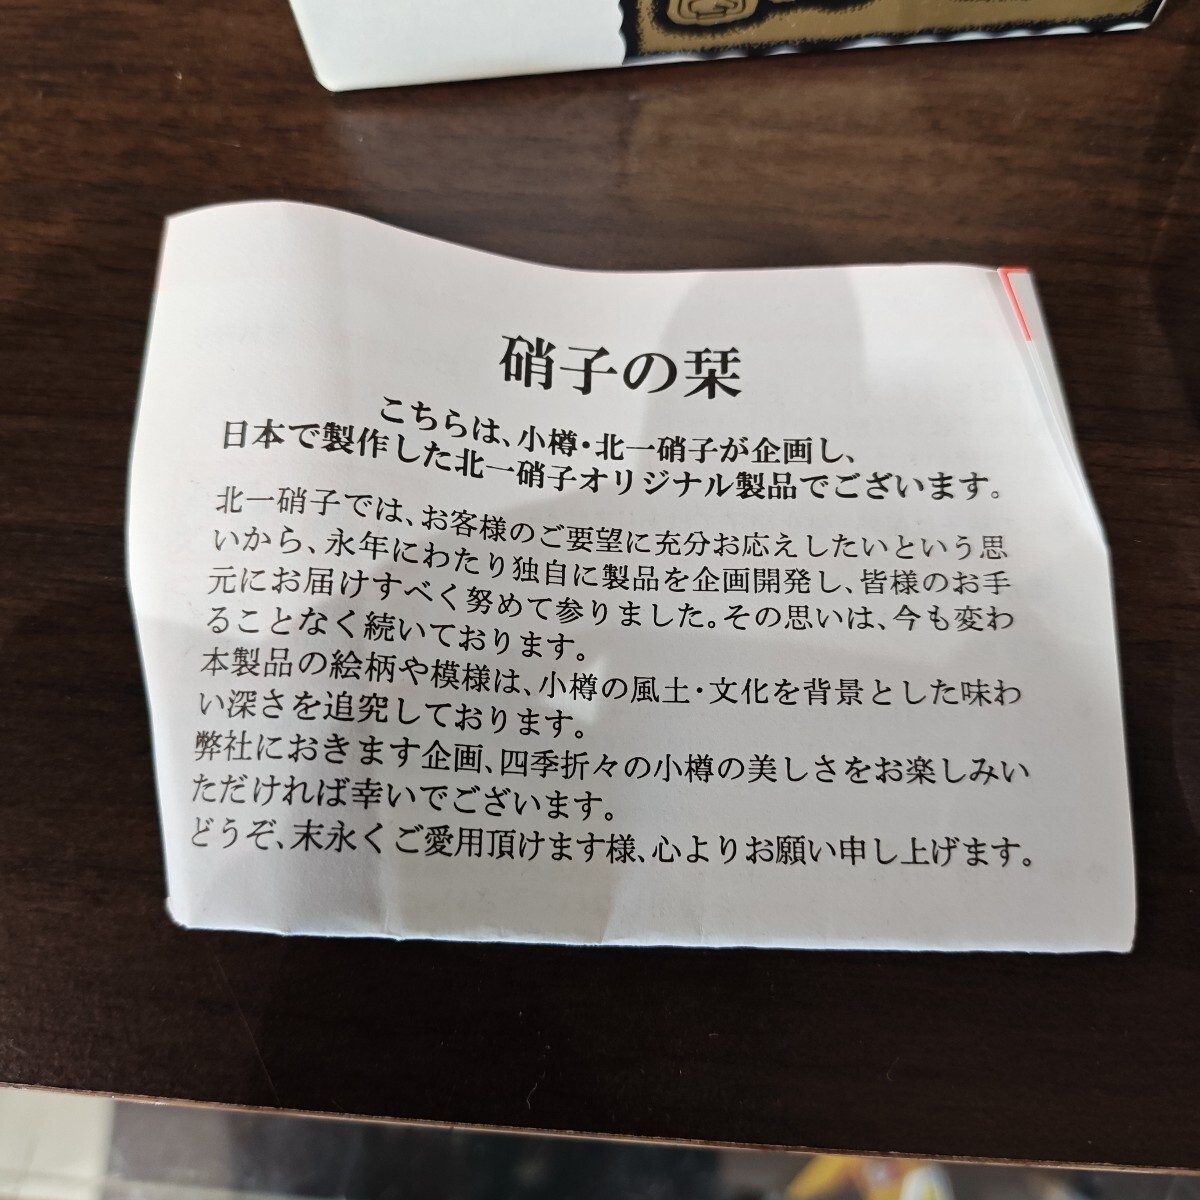 硝子の栞
こちらは、小樽・北一硝子が企画し、
日本で製作した北一硝子オリジナル製品でございます。
北一硝子では、お客様のご要望に充分お応えしたいという思
いから、永年にわたり独自に製品を企画開発し、皆様のお手
元にお届けすべく努めて参りました。その思いは、今も変わ
ることなく続いております。
本製品の絵柄や模様は、小樽の風土・文化を背景とした味わ
い深さを追究しております。
弊社におきます企画、四季折々の小樽の美しさをお楽しみい
ただければ幸いでございます。
どうぞ、末永くご愛用頂けます様、心よりお願い申し上げます。